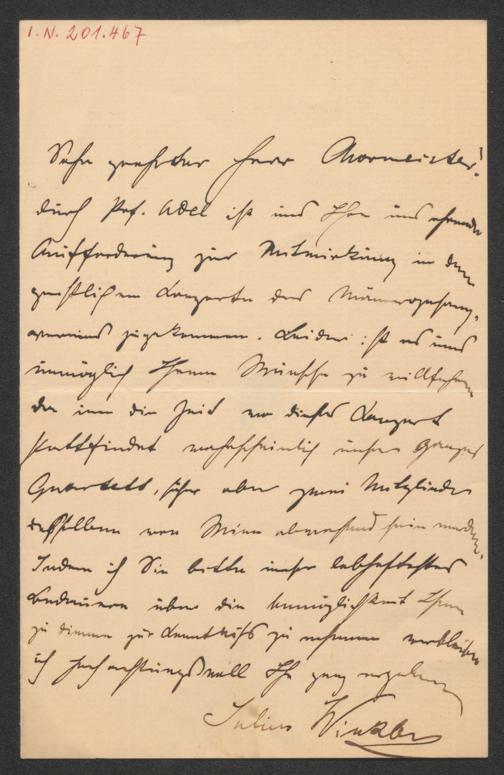 I.N. 201.467
Sehr geehrter Herr Chormeister!
durch Prof. Udel ist uns Ihre uns ehrende
Aufforderung zur Mitwirkung in dem
geistlichen Konzerte des Männergesang-
vereines zugekommen. Leider ist es uns
unmöglich Ihrem Wunsche zu willfahren
da um die Zeit wo dieses Konzert
stattfindet wahrscheinlich unser ganzes
Quartett, sicher aber zwei Mitglieder
desselben von Wien abwesend sein werden.
Indem ich Sie bitte unser lebhaftestes
Bedauern über die Unmöglichkeit Ihnen
zu dienen zur Kenntniss zu nehmen verbleibe
ich hochachtungsvoll Ihr ganz ergebener
Julius Winkler